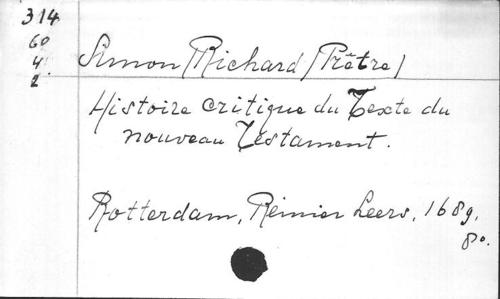 314
60
4.
2.
Simon Richard (Prêtre)
Histoire critique du Texte du
nouveau Testament.
Rotterdam, Reinier Leers, 1689,
8o.